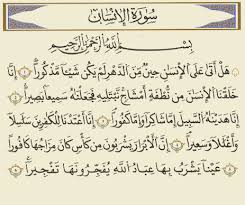 سُورَةُ الإِنسَانِ
بِسْمِ ٱللَّهِ ٱلرَّحْمَٰنِ ٱلرَّحِيمِ
هَلْ أَتَىٰ عَلَى ٱلْإِنسَٰنِ حِينٌ مِّنَ ٱلدَّهْرِ لَمْ يَكُن شَيْـًٔا مَّذْكُورًا ١ إِنَّا
خَلَقْنَا ٱلْإِنسَٰنَ مِن نُّطْفَةٍ أَمْشَاجٍ نَّبْتَلِيهِ فَجَعَلْنَٰهُ سَمِيعًۢا بَصِيرًا ٢
إِنَّا هَدَيْنَٰهُ ٱلسَّبِيلَ إِمَّا شَاكِرًا وَإِمَّا كَفُورًا ٣ إِنَّآ أَعْتَدْنَا لِلْكَٰفِرِينَ سَلَٰسِلَا۟
وَأَغْلَٰلًا وَسَعِيرًا ٤ إِنَّ ٱلْأَبْرَارَ يَشْرَبُونَ مِن كَأْسٍ كَانَ مِزَاجُهَا كَافُورًا ٥
عَيْنًا يَشْرَبُ بِهَا عِبَادُ ٱللَّهِ يُفَجِّرُونَهَا تَفْجِيرًا ٦